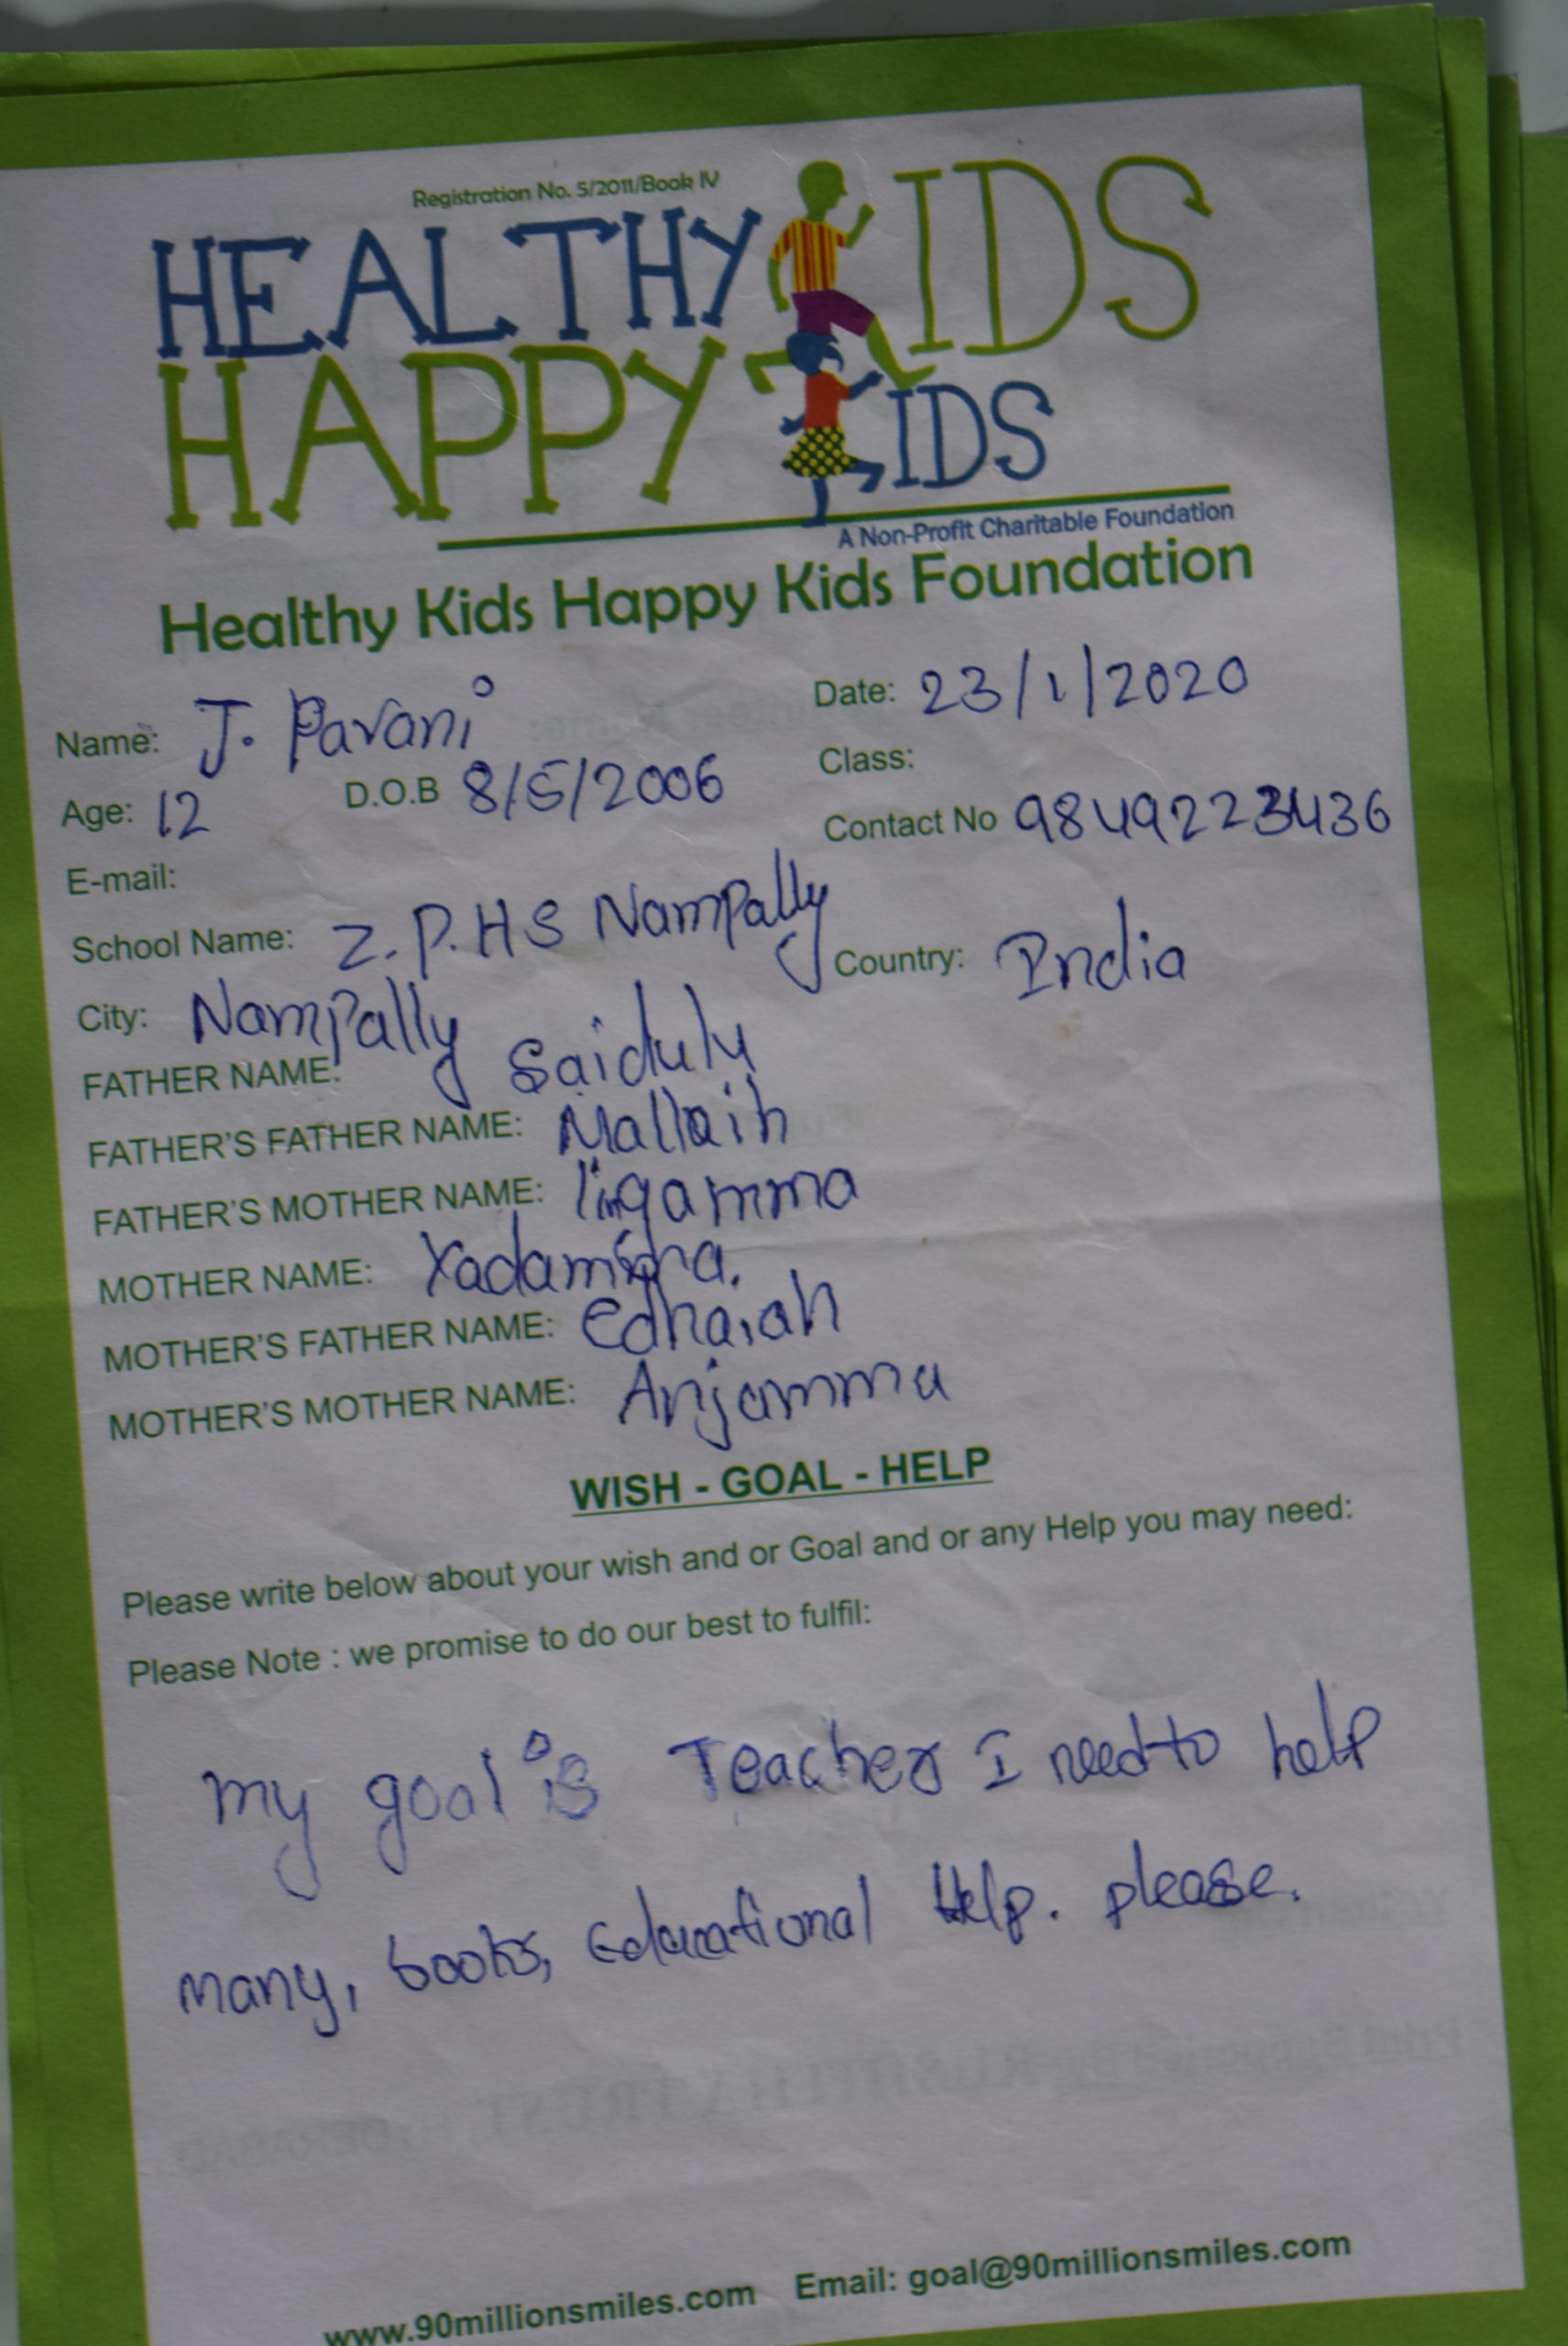 Registration No. 5/2011/Book IV
HEALTHY KIDS
HAPPY KIDS
A Non-Profit Charitable Foundation
Healthy Kids Happy Kids Foundation
Name: J. Pavani Date: 23/1/2020
Age: 12 D.O.B 8/5/2006 Class:
E-mail: Contact No 9849223436
School Name: Z.P.HS Nampally
City: Nampally Country: India
FATHER NAME: Saidulu
FATHER'S FATHER NAME: Mallaih
FATHER'S MOTHER NAME: lingamma
MOTHER NAME:
MOTHER'S FATHER NAME: Edhaiah
MOTHER'S MOTHER NAME: Anjamma
WISH - GOAL - HELP
Please write below about your wish and or Goal and or any Help you may need:
Please Note : we promise to do our best to fulfil:
my goal is Teacher I need to help
many, books, Educational Help. please.
www.90millionsmiles.com Email: goal@90millionsmiles.com